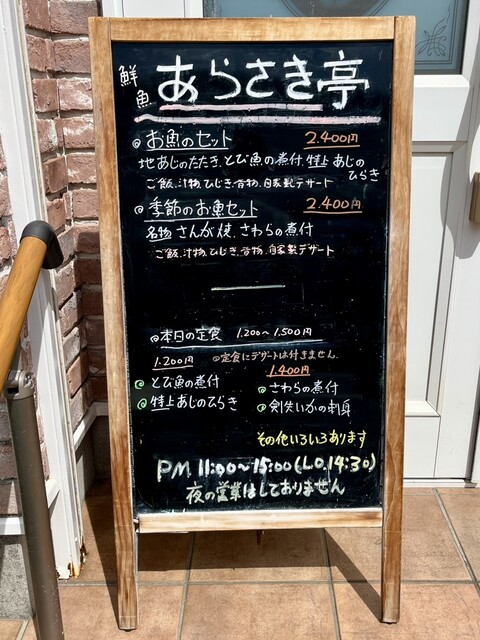 鮮魚 あらさき亭
お魚のセット 2.400円
地あじのたたき、とび魚の煮付、特上あじのひらき
ご飯、汁物、ひじき、香物、自家製デザート
季節のお魚セット 2.400円
名物さんが焼、さわらの煮付
ご飯、汁物、ひじき、香物、自家製デザート
本日の定食 1.200〜1.500円
◎定食にデザートは付きません。
1.200円
とび魚の煮付
特上あじのひらき
1.400円
さわらの煮付
剣先いかの刺身
その他いろいろあります
PM 11:00〜15:00(L.O.14:30)
夜の営業はしておりません